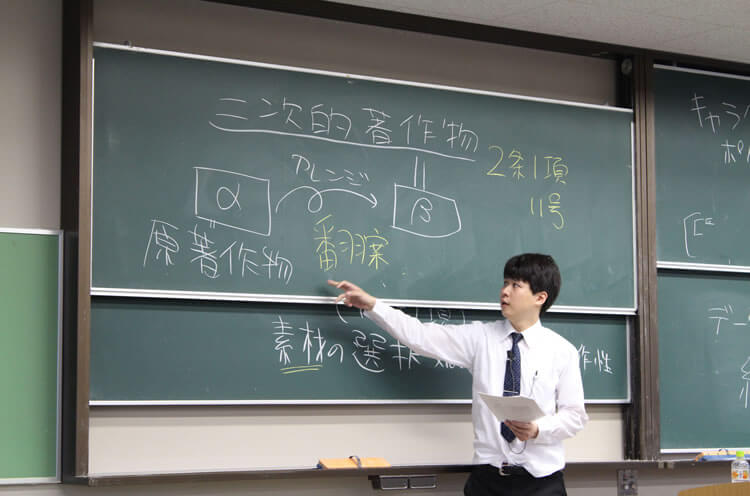 二次的著作物
2条1項
11号
アレンジ
α
β
原著作物
翻案
素材の選択
作性
キャラ
デー